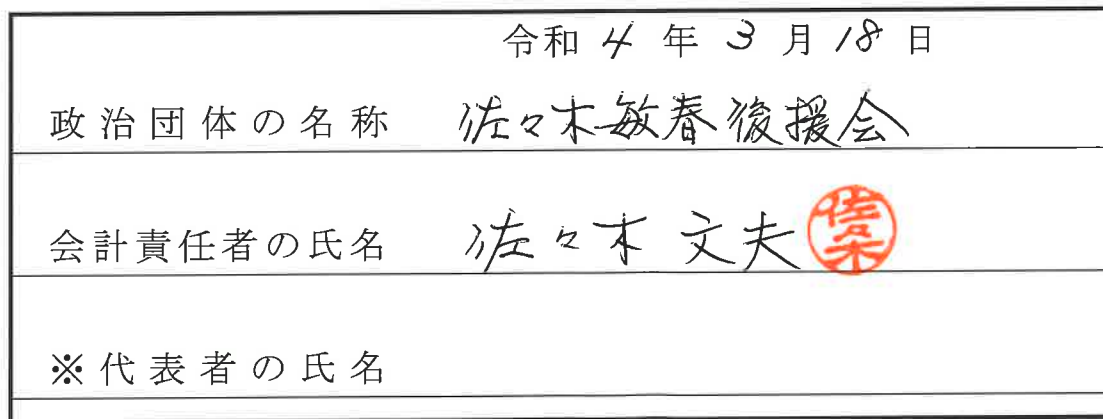 令和 4 年 3 月 18 日
政治団体の名称 佐々木敏春後援会
会計責任者の氏名 佐々木 文夫 佐々木
※代表者の氏名